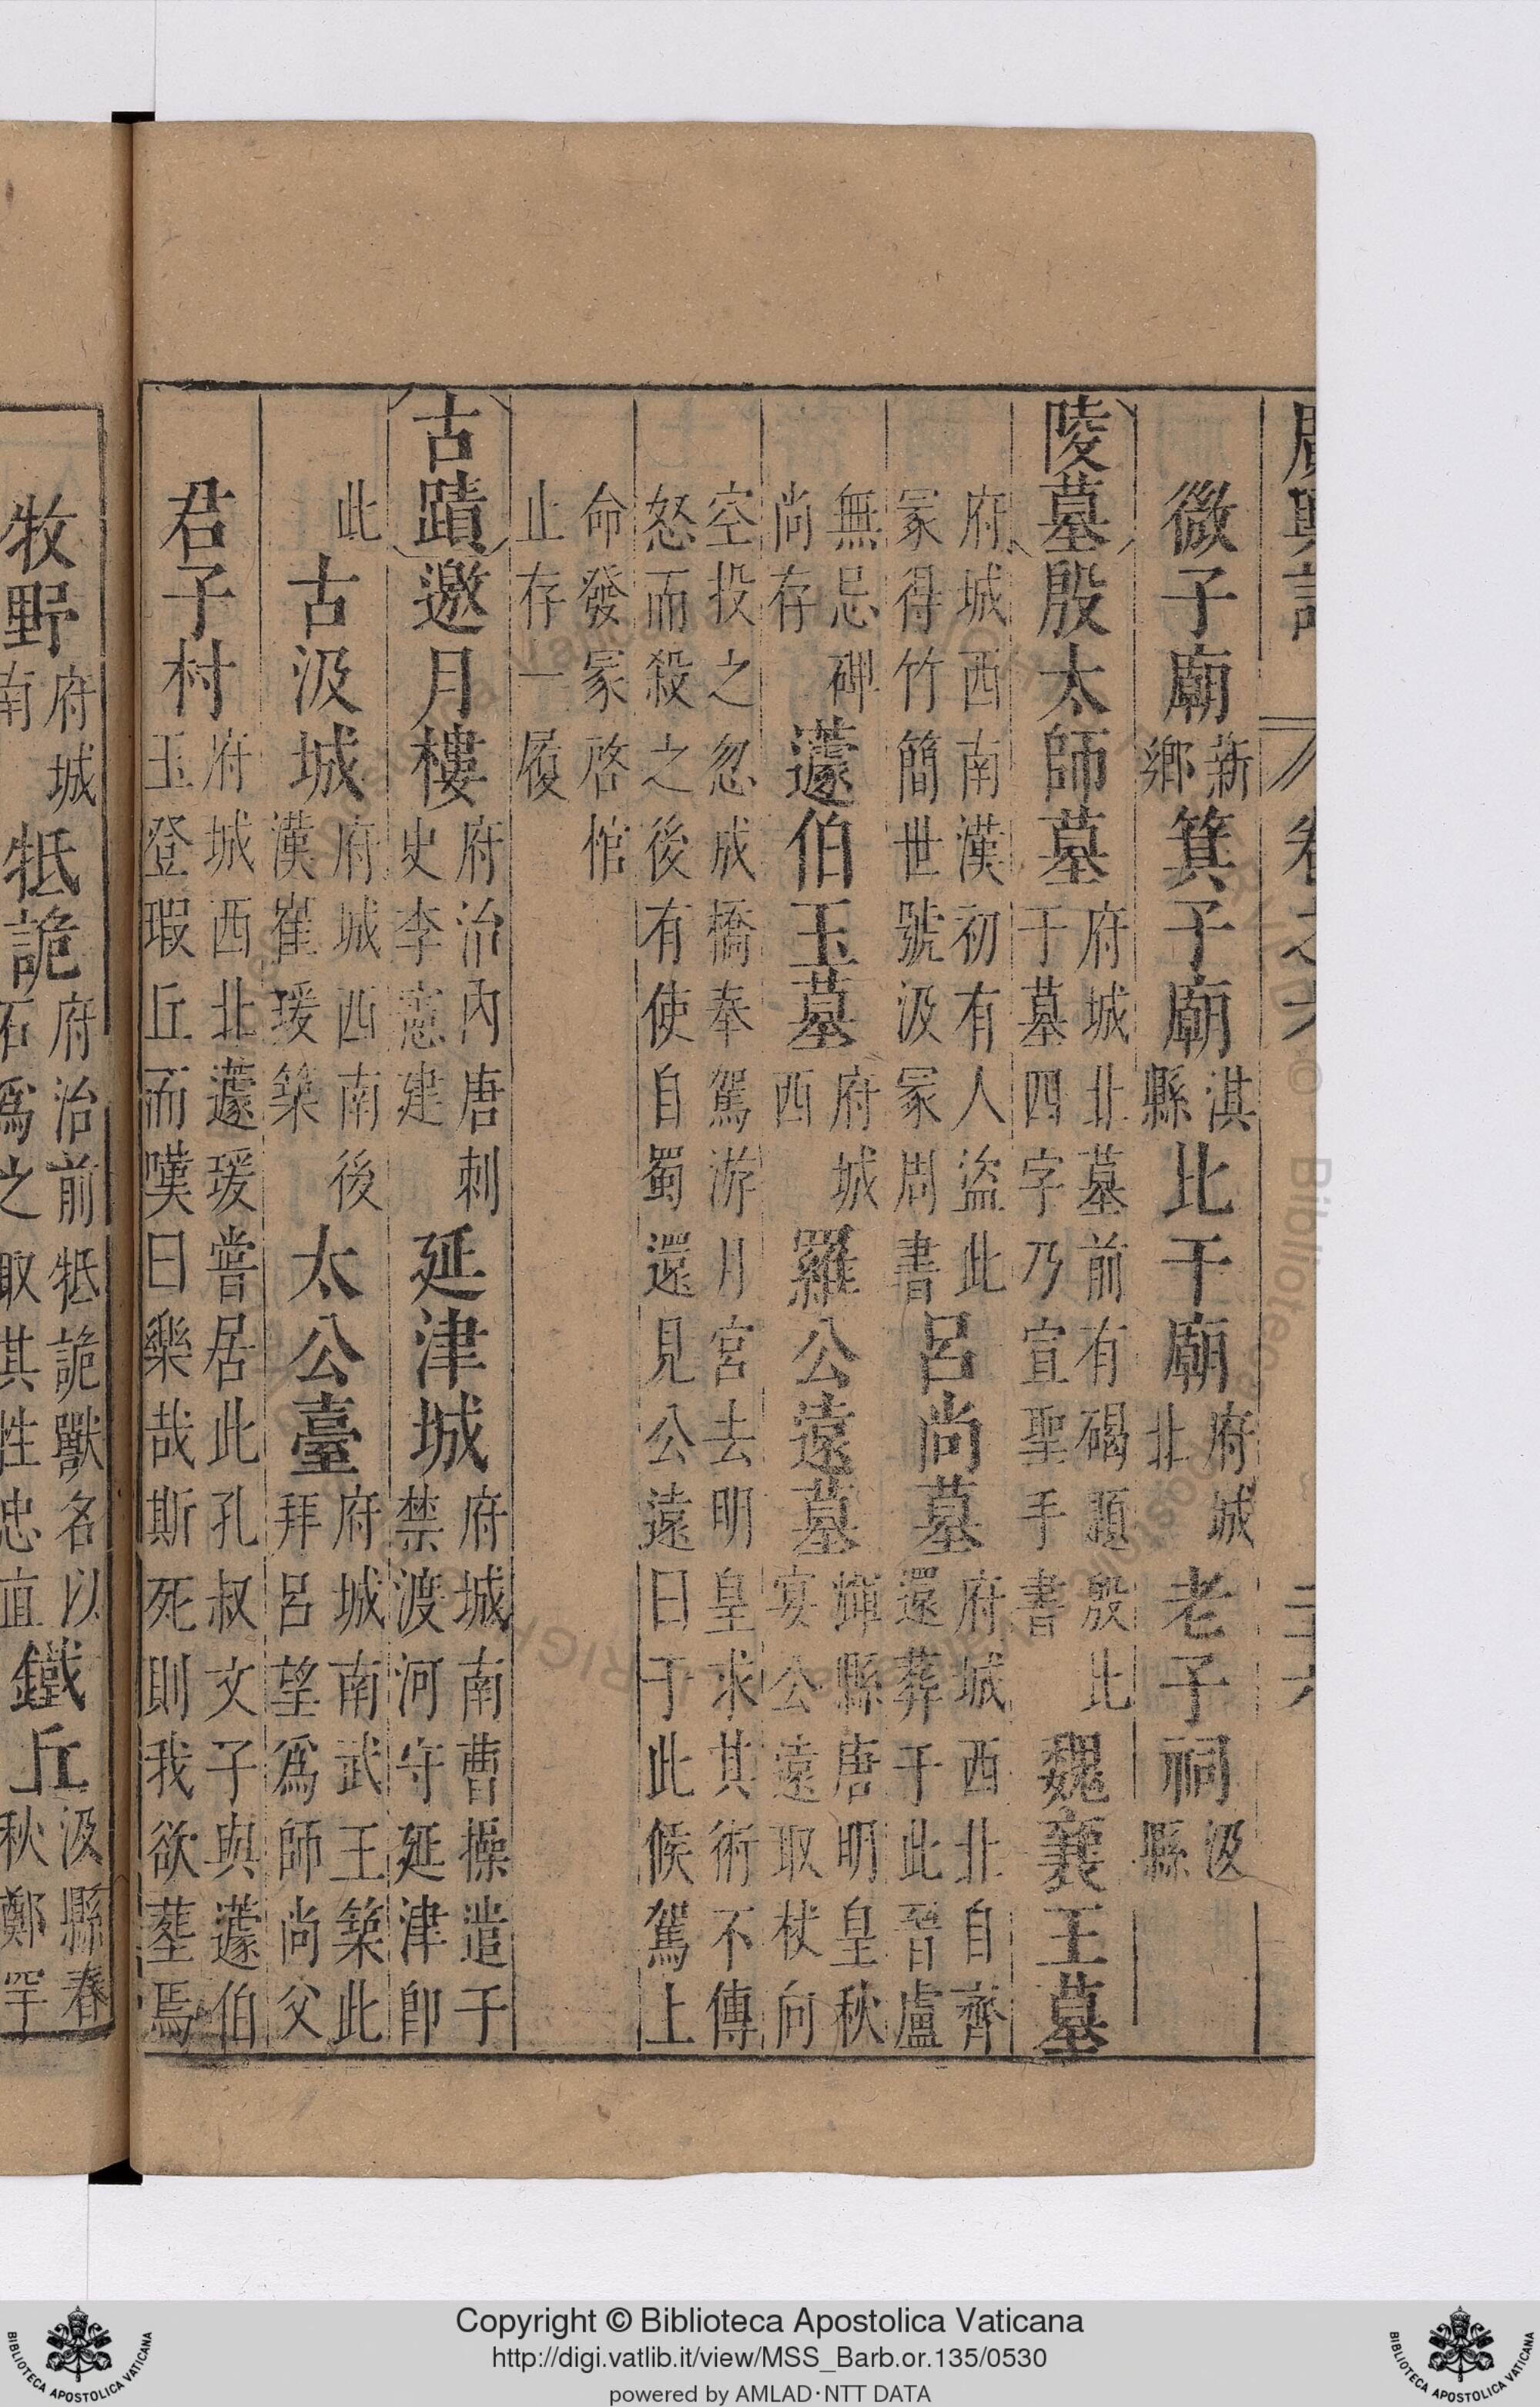 廣輿記 卷之六 二十六
微子廟 新鄉 箕子廟 淇縣 比干廟 府城北 老子祠 汲縣
陵墓 殷太師墓 府城北墓前有碣題殷比于墓四字乃宣聖手書 魏襄王墓
府城西南漢初有人盜此冡得竹簡世號汲冡周書 呂尚墓 府城西北自齊還葬于此晉盧
無忌碑尚存 蘧伯玉墓 府城西 羅公遠墓 輝縣唐明皇秋宴公遠取杖向
空投之忽成橋奉駕游月宮去明皇求其術不傳怒而殺之後有使自蜀還見公遠曰于此候駕上
命發冡啓棺止存一履
古蹟 邀月樓 府治內唐刺史李憲建 延津城 府城南曹操遣于禁渡河守延津卽
此 古汲城 府城西南後漢崔瑗築 太公臺 府城南武王築此拜呂望爲師尚父
君子村 府城西北蘧瑗嘗居此孔叔文子與蘧伯玉登瑕丘而嘆曰樂哉斯死則我欲葬焉
牧野 府城南 牴詭 府治前牴詭獸名以石爲之取其性忠直 鐵丘 汲縣春秋鄭罕
Copyright © Biblioteca Apostolica Vaticana
http://digi.vatlib.it/view/MSS_Barb.or.135/0530
powered by AMLAD·NTT DATA
BIBLIOTECA APOSTOLICA VATICANA
BIBLIOTECA APOSTOLICA VATICANA